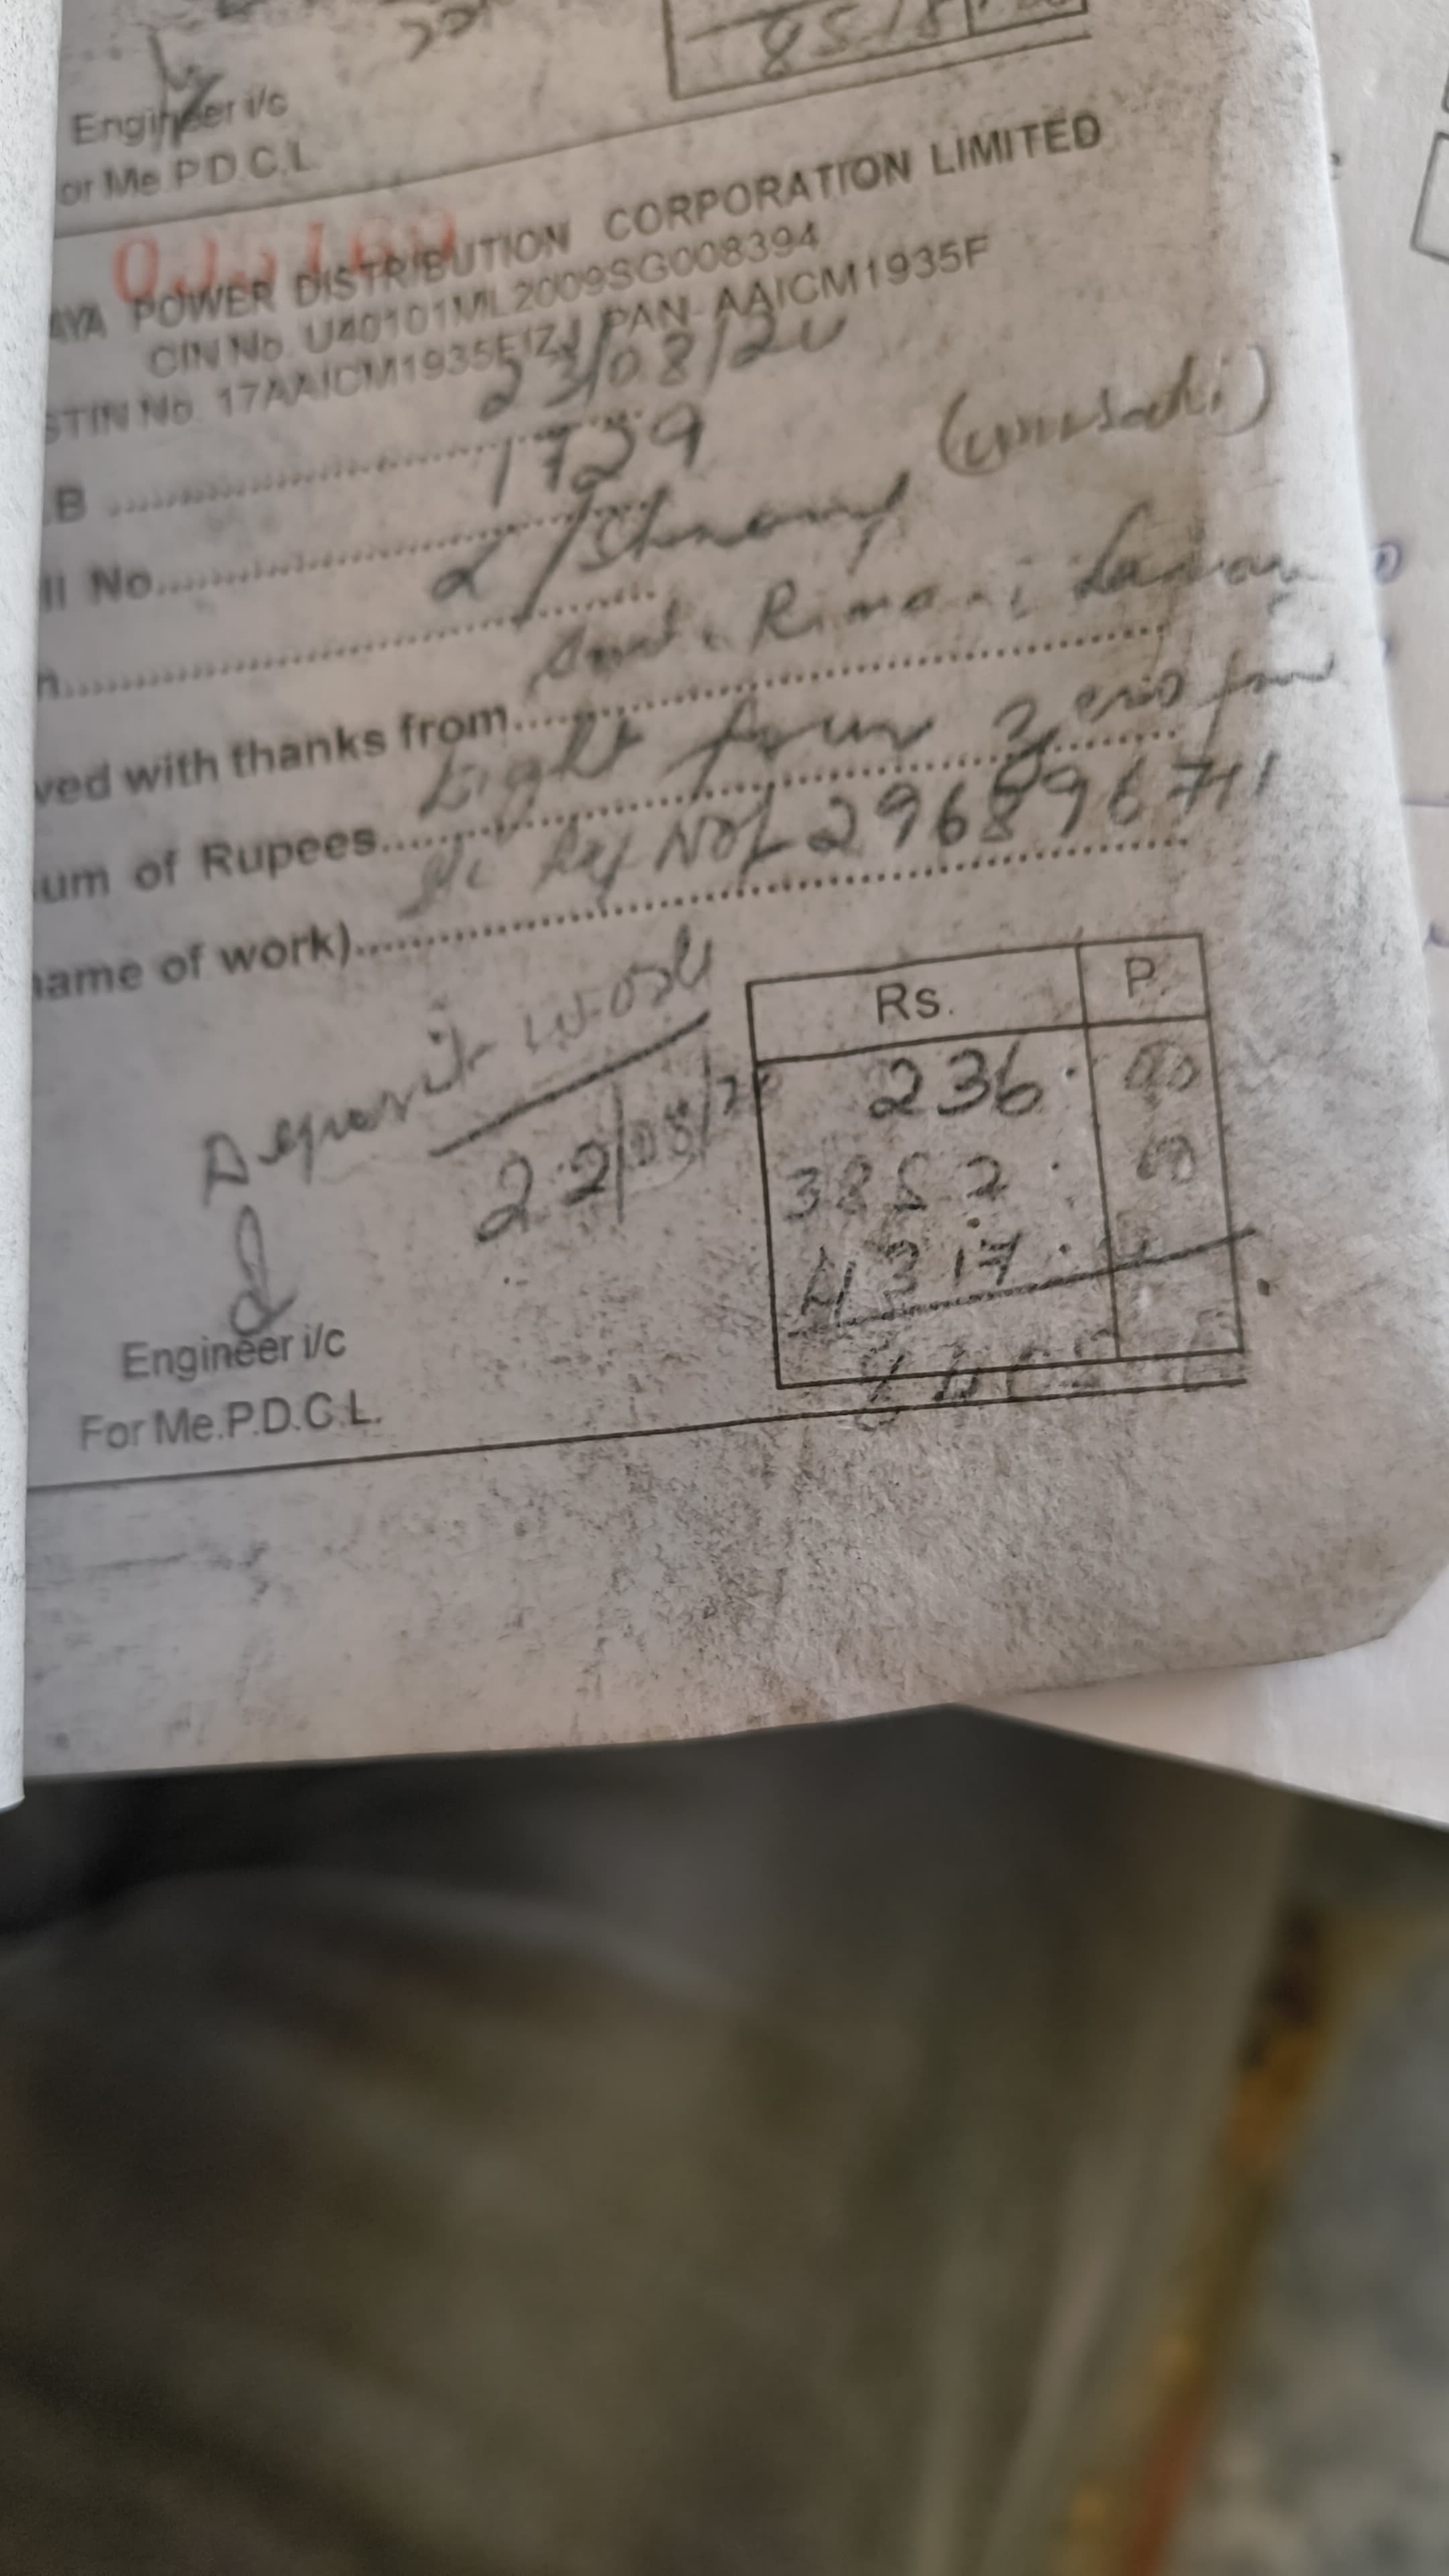 8518
Engineer i/c
or Me.P.D.C.L
AYA POWER DISTRIBUTION CORPORATION LIMITED
CIN No. U40101ML2009SG008394
STIN No. 17AAICM1935E1ZJ PAN- AAICM1935F
23/08/20
B ....................
1729
ll No....................
n....................
ved with thanks from....................
Eight four zero four
um of Rupees....................
Ref No 2968967411
name of work)....................
Deposit work
22/08/20
Rs. P.
236. 00
3852. 00
4317.
Engineer i/c
For Me.P.D.C.L.